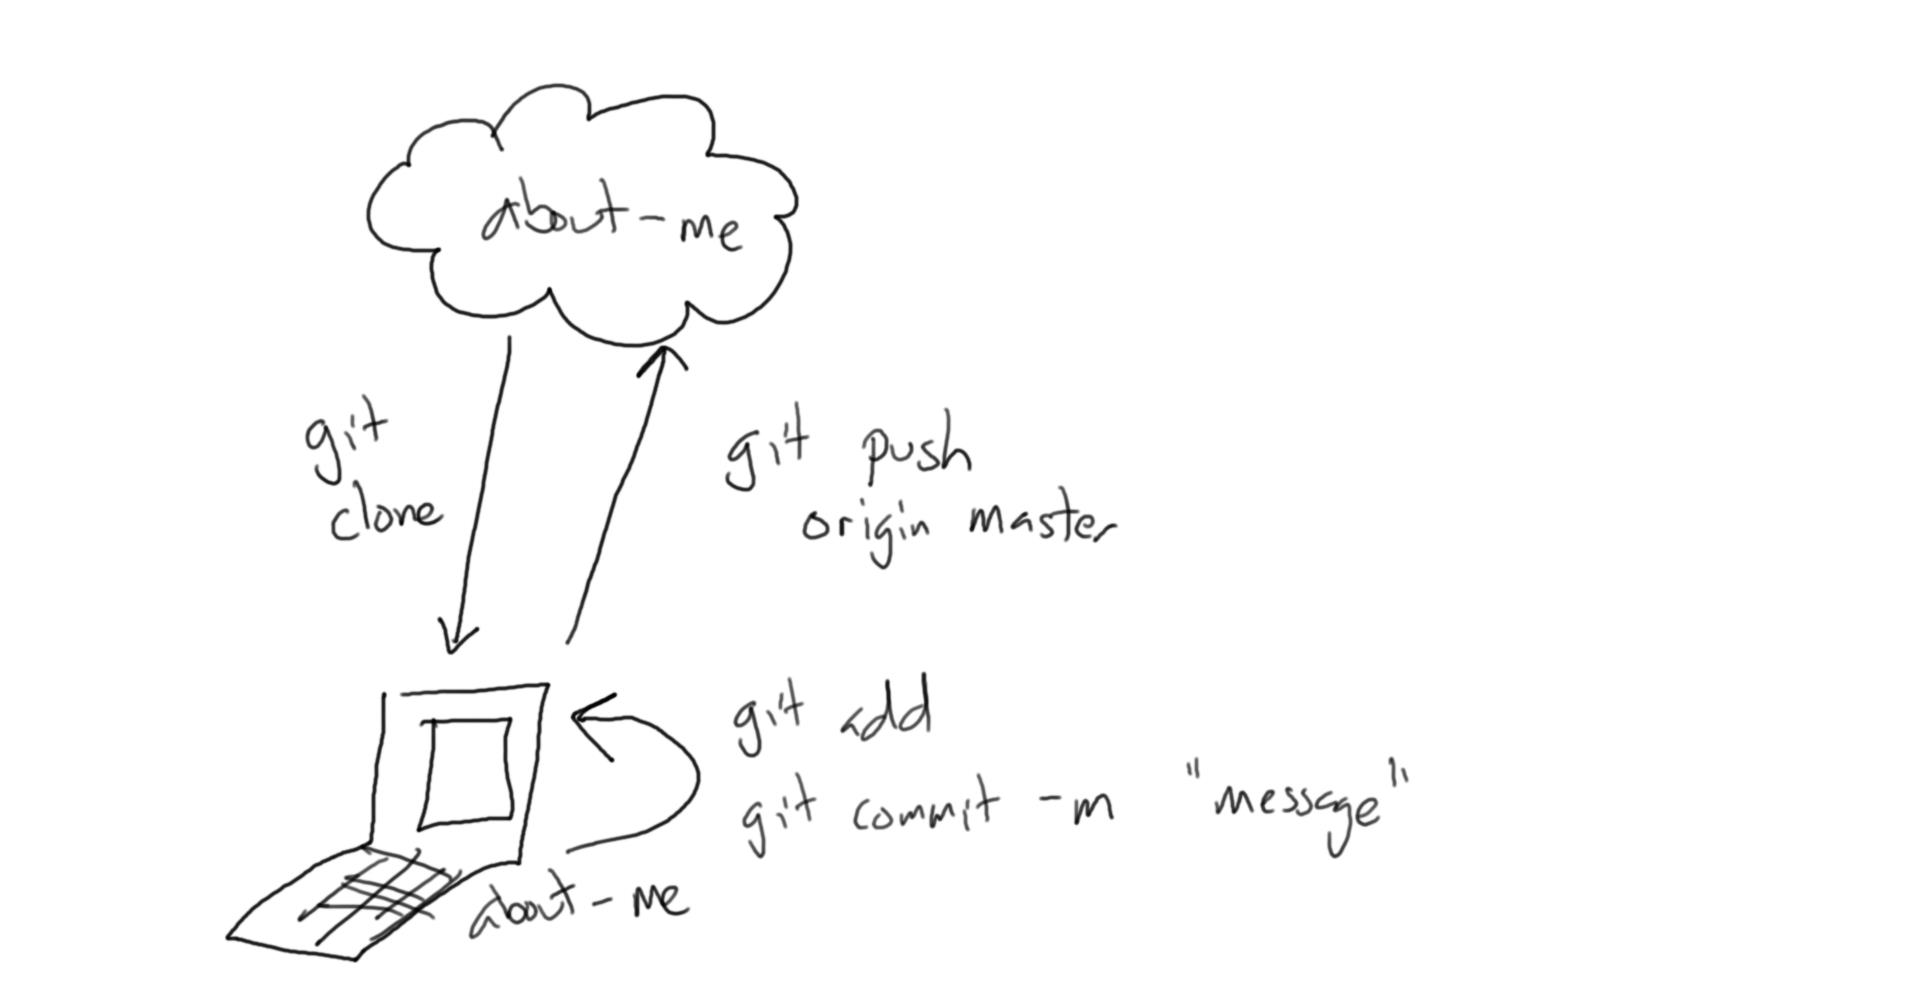 about-me
git
clone
git push
origin master
git add
git commit -m "message"
about-me